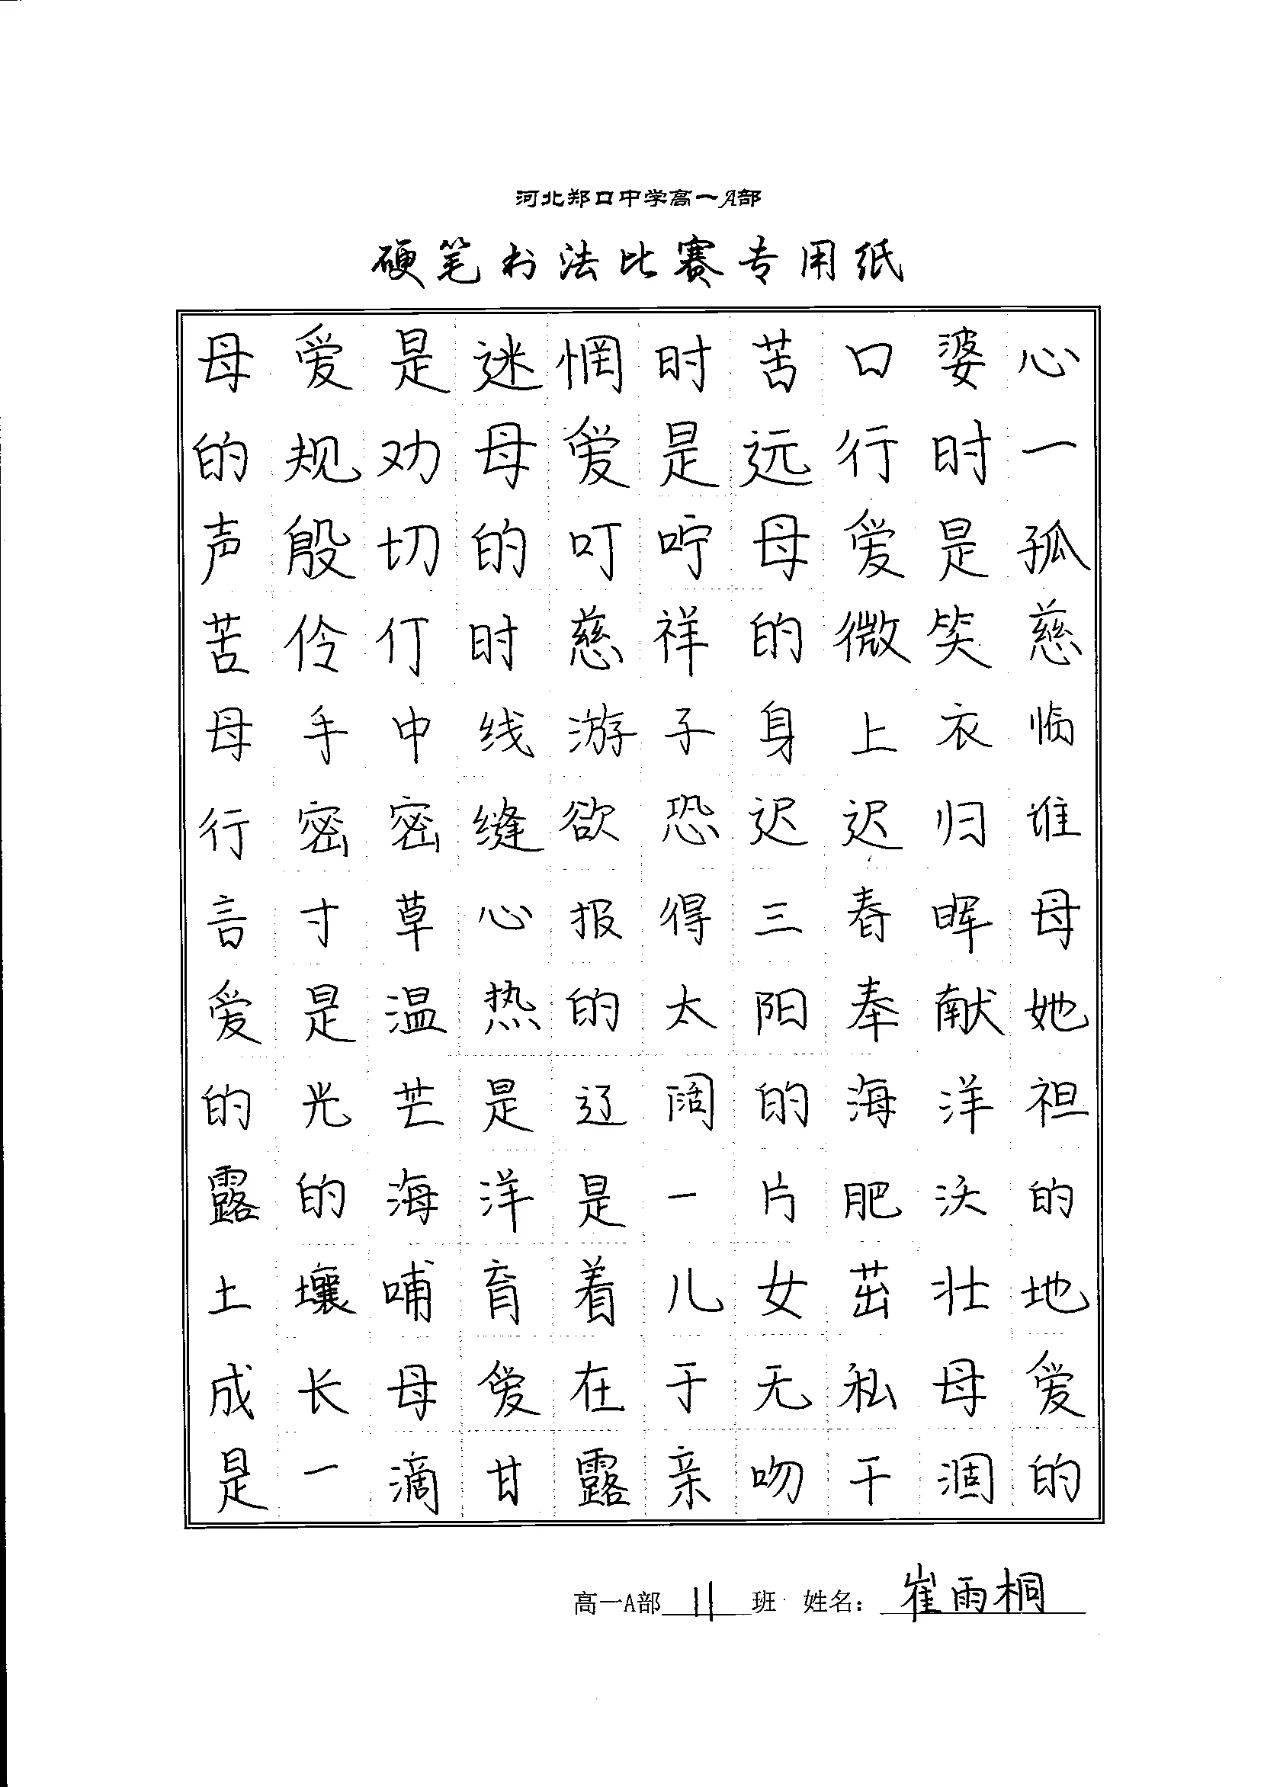 河北郑口中学高一A部
硬笔书法比赛专用纸
母爱是迷惘时苦口婆心
的规劝母爱是远行时一
声殷切的叮咛母爱是孤
苦伶仃时慈祥的微笑慈
母手中线游子身上衣临
行密密缝欲恐迟迟归谁
言寸草心报得三春晖母
爱是温热的太阳奉献她
的光芒是辽阔的海洋袒
露的海洋是一片肥沃的
土壤哺育着儿女茁壮地
成长母爱在于无私母爱
是一滴甘露亲吻干涸的
高一A部 11 班 姓名：崔雨桐